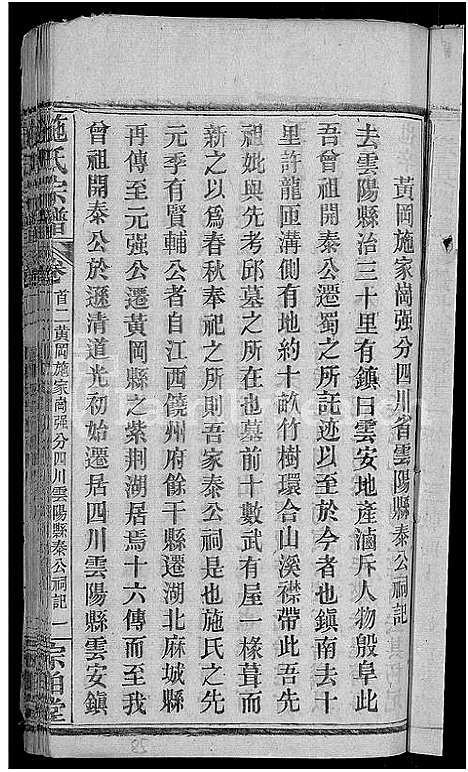 黃岡施家崗强分四川省雲陽縣泰公祠記
去雲陽縣治三十里有鎮日雲安地產滷斥人物殷阜此
吾曾祖開泰公遷蜀之所託迹以至於今者也鎮南去十
里許龍匝溝側有地約十畝竹樹環合山溪襟帶此吾先
祖妣與先考邱墓之所在也墓前十數武有屋一椽葺而
新之以爲春秋奉祀之所則吾家泰公祠是也施氏之先
元季有賢輔公者自江西饒州府餘干縣遷湖北麻城縣
再傳至元强公遷黃岡縣之紫荆湖居焉十六傳而至我
曾祖開泰公於遜清道光初始遷居四川雲陽縣雲安鎮
施氏宗譜
卷首二黃岡施家崗强分四川雲陽縣泰公祠記
一
宗伯堂